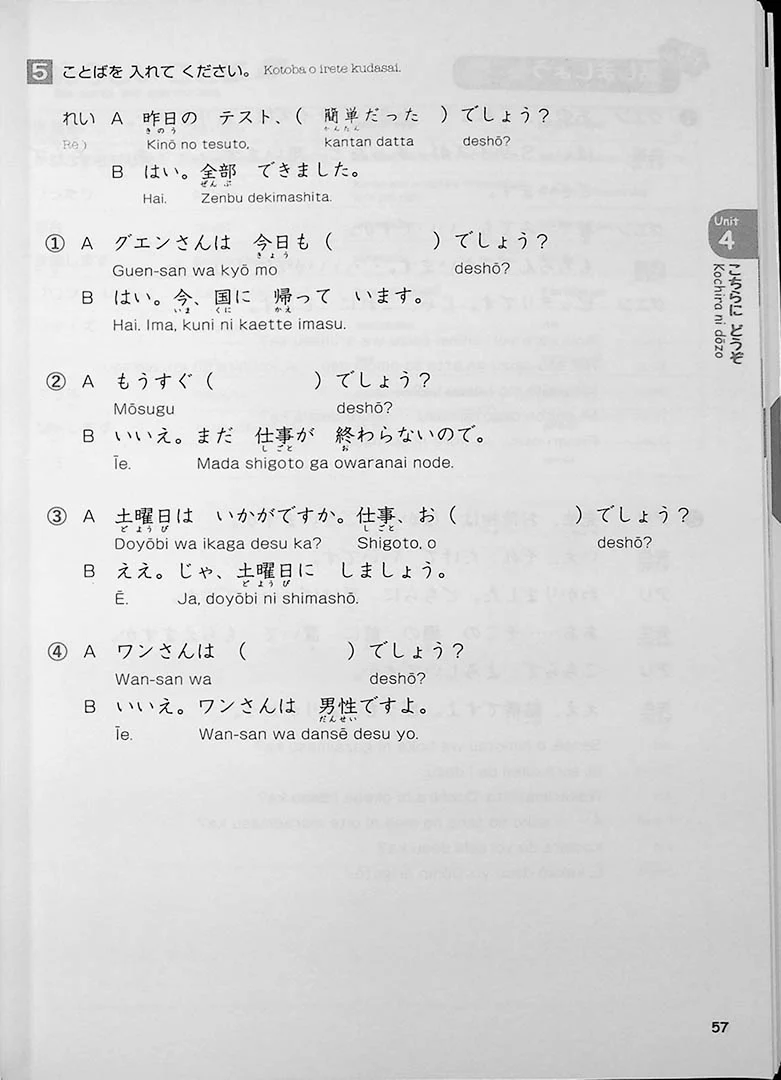 5 ことばを 入れて ください。 Kotoba o irete kudasai.
れい A 昨日の テスト、( 簡単だった )でしょう?
きのう かんたん
Rē) Kinō no tesuto, kantan datta deshō?
B はい。全部 できました。
ぜんぶ
Hai. Zenbu dekimashita.
① A グエンさんは 今日も( )でしょう?
きょう
Guen-san wa kyō mo deshō?
B はい。今、国に 帰って います。
いま くに かえ
Hai. Ima, kuni ni kaette imasu.
② A もうすぐ( )でしょう?
Mōsugu deshō?
B いいえ。まだ 仕事が 終わらないので。
しごと お
Īe. Mada shigoto ga owaranai node.
③ A 土曜日は いかがですか。仕事、お( )でしょう?
どようび しごと
Doyōbi wa ikaga desu ka? Shigoto, o deshō?
B ええ。じゃ、土曜日に しましょう。
どようび
Ē. Ja, doyōbi ni shimashō.
④ A ワンさんは ( )でしょう?
Wan-san wa deshō?
B いいえ。ワンさんは 男性ですよ。
だんせい
Īe. Wan-san wa dansē desu yo.
Unit
4
こちらに どうぞ
Kochira ni dōzo
57